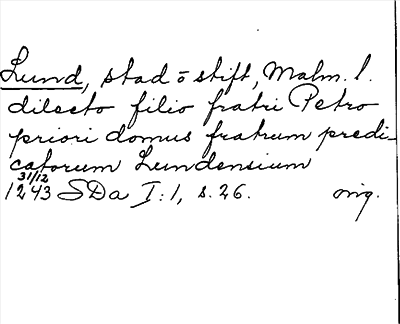 Lund, stad o stift, Malm. l.
dilecto filio fratri Petro
priori domus fratrum predi-
catorum Lundensium
31/12
1243 SDa I:1, s. 26. orig.